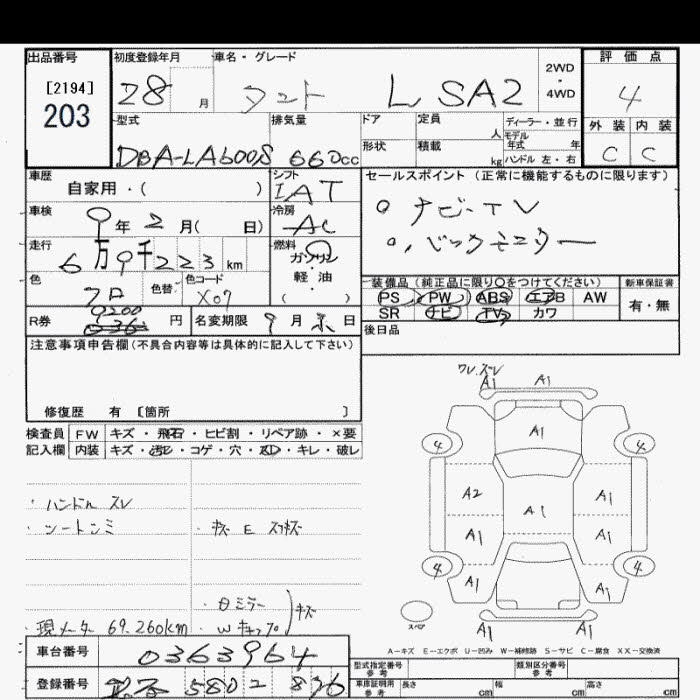 出品番号
[2194]
203
初度登録年月
28 月
車名・グレード
タント L SA2
2WD
・
4WD
評価点
4
外装 内装
C C
型式
DBA-LA600S
排気量
660cc
ドア
形状
定員 人
積載 kg
ディーラー・並行
モデル年式 年
ハンドル 左・右
車歴
自家用・( )
シフト
IAT
車検
9年2月( 日)
冷房
AC
走行
6万9千223km
燃料
ガソリン
・
軽油
( )
色
クロ
色替
色コード
X07
R券
9200
円
名変期限 9月末日
セールスポイント (正常に機能するものに限ります)
○ ナビ・TV
○、バックモニター
装備品 (純正品に限り○をつけてください)
PS PW ABS エアB AW
SR ナビ TV カワ
新車保証書
有・無
後日品
注意事項申告欄(不具合内容等は具体的に記入して下さい)
修復歴 有 [箇所 ]
検査員記入欄
FW キズ・飛石・ヒビ割・リペア跡・×要
内装 キズ・汚レ・コゲ・穴・スレ・キレ・破レ
・ハンドル スレ
・シートシミ
・キズ E スリキズ
・θミラー
・Wキャップ
キズ
・現メーター 69.260km
ワレ.ズレ
A1 A1
A1
4 4
A2 A1 A1
A1 A1
4 4
A1 A1
A1 A1
スペア
A-キズ E-エクボ U-凹み W-補修跡 S-サビ C-腐食 XX-交換済
車台番号
0363964
登録番号
580 2 836
型式指定番号
参考
類別区分番号
参考
車庫証明用
参考
長さ cm 幅 cm 高さ cm